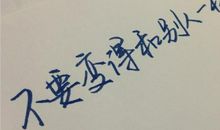 不要变得和别人一